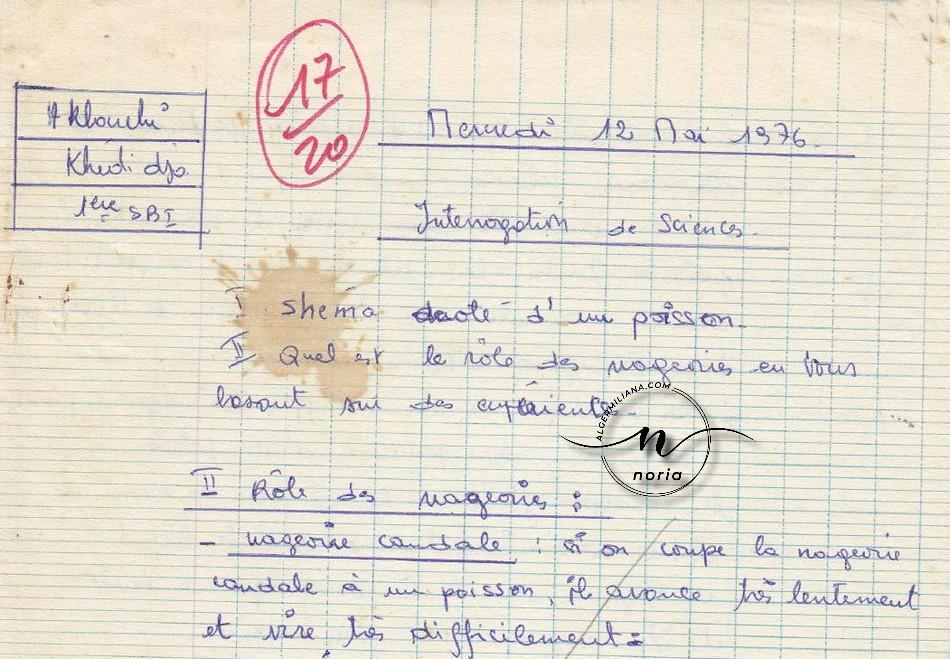 Aklouchi
Khedidja
1ère SBI
17/20
Mercredi 12 Mai 1976.
Interrogation de Sciences.
I Shema de côté d'un poisson.
II Quel est le rôle des nageoires en vous
basant sur des expériences.
ALGERMILIANA.COM
n
noria
II Rôle des nageoires :
- nageoire caudale : si on coupe la nageoire
caudale à un poisson, il avance très lentement
et vire très difficilement :